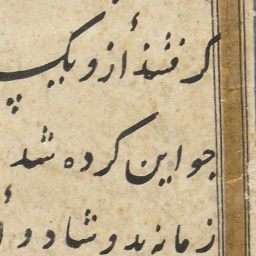 گرفتند ازو یک
جو این کرده شد
زمانه بد و شاد و